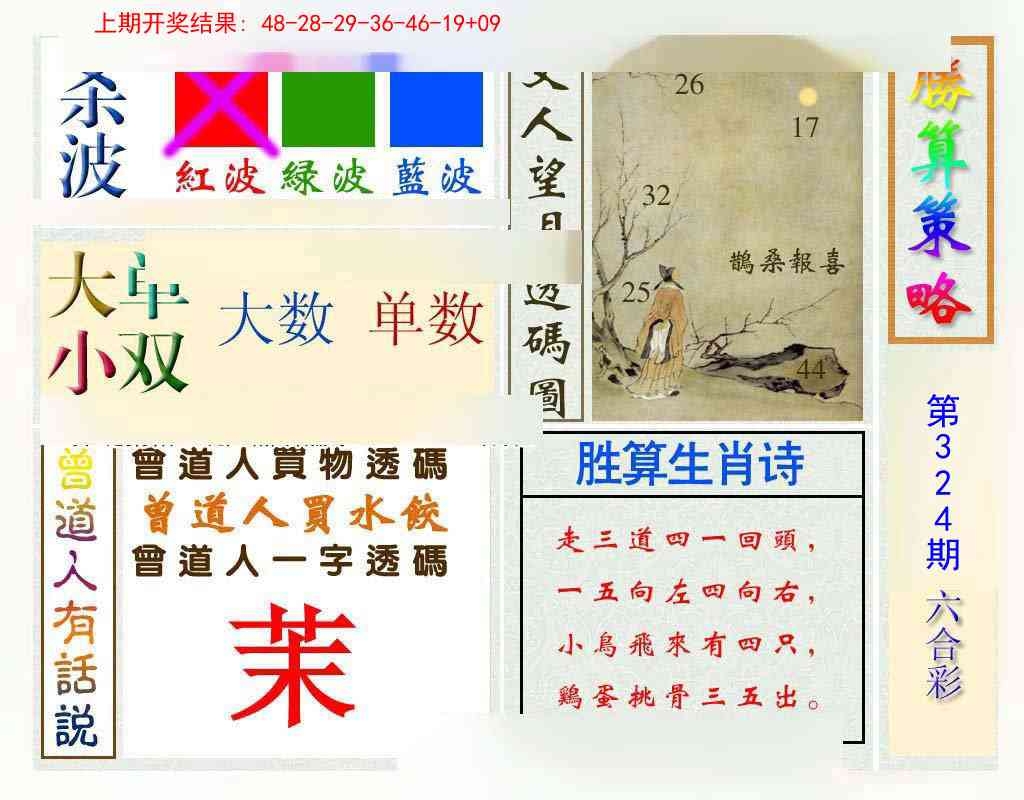 上期开奖结果: 48-28-29-36-46-19+09
波
紅波 緑波 藍波
大小
单双
大数 单数
人望月
透碼圖
26
17
32
鵲桑報喜
25
44
勝算策略
第324期
六合彩
曾道人有話説
曾道人買物透碼
曾道人買水餃
曾道人一字透碼
茉
胜算生肖诗
走三道四一回頭，
一五向左四向右，
小鳥飛來有四只，
鷄蛋挑骨三五出。